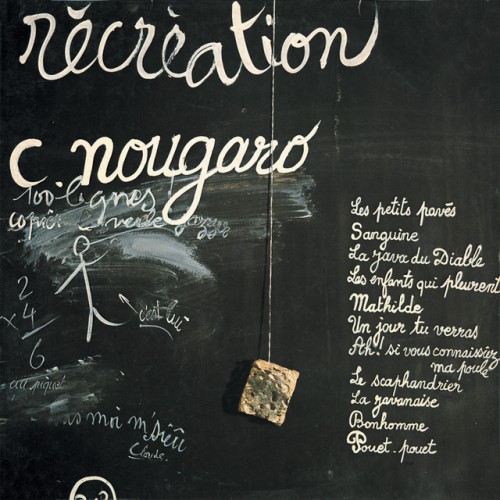 récréation
c nougaro
100 lignes !
copier le verbe jazzer
2
x 4
6
au piquet
c'est lui
pas moi m'sieû
Claude.
Les petits pavés
Sanguine
La java du Diable
Les enfants qui pleurent
Mathilde
Un jour tu verras
Ah! si vous connaissiez
ma poule
Le scaphandrier
La javanaise
Bonhomme
Pouet-pouet